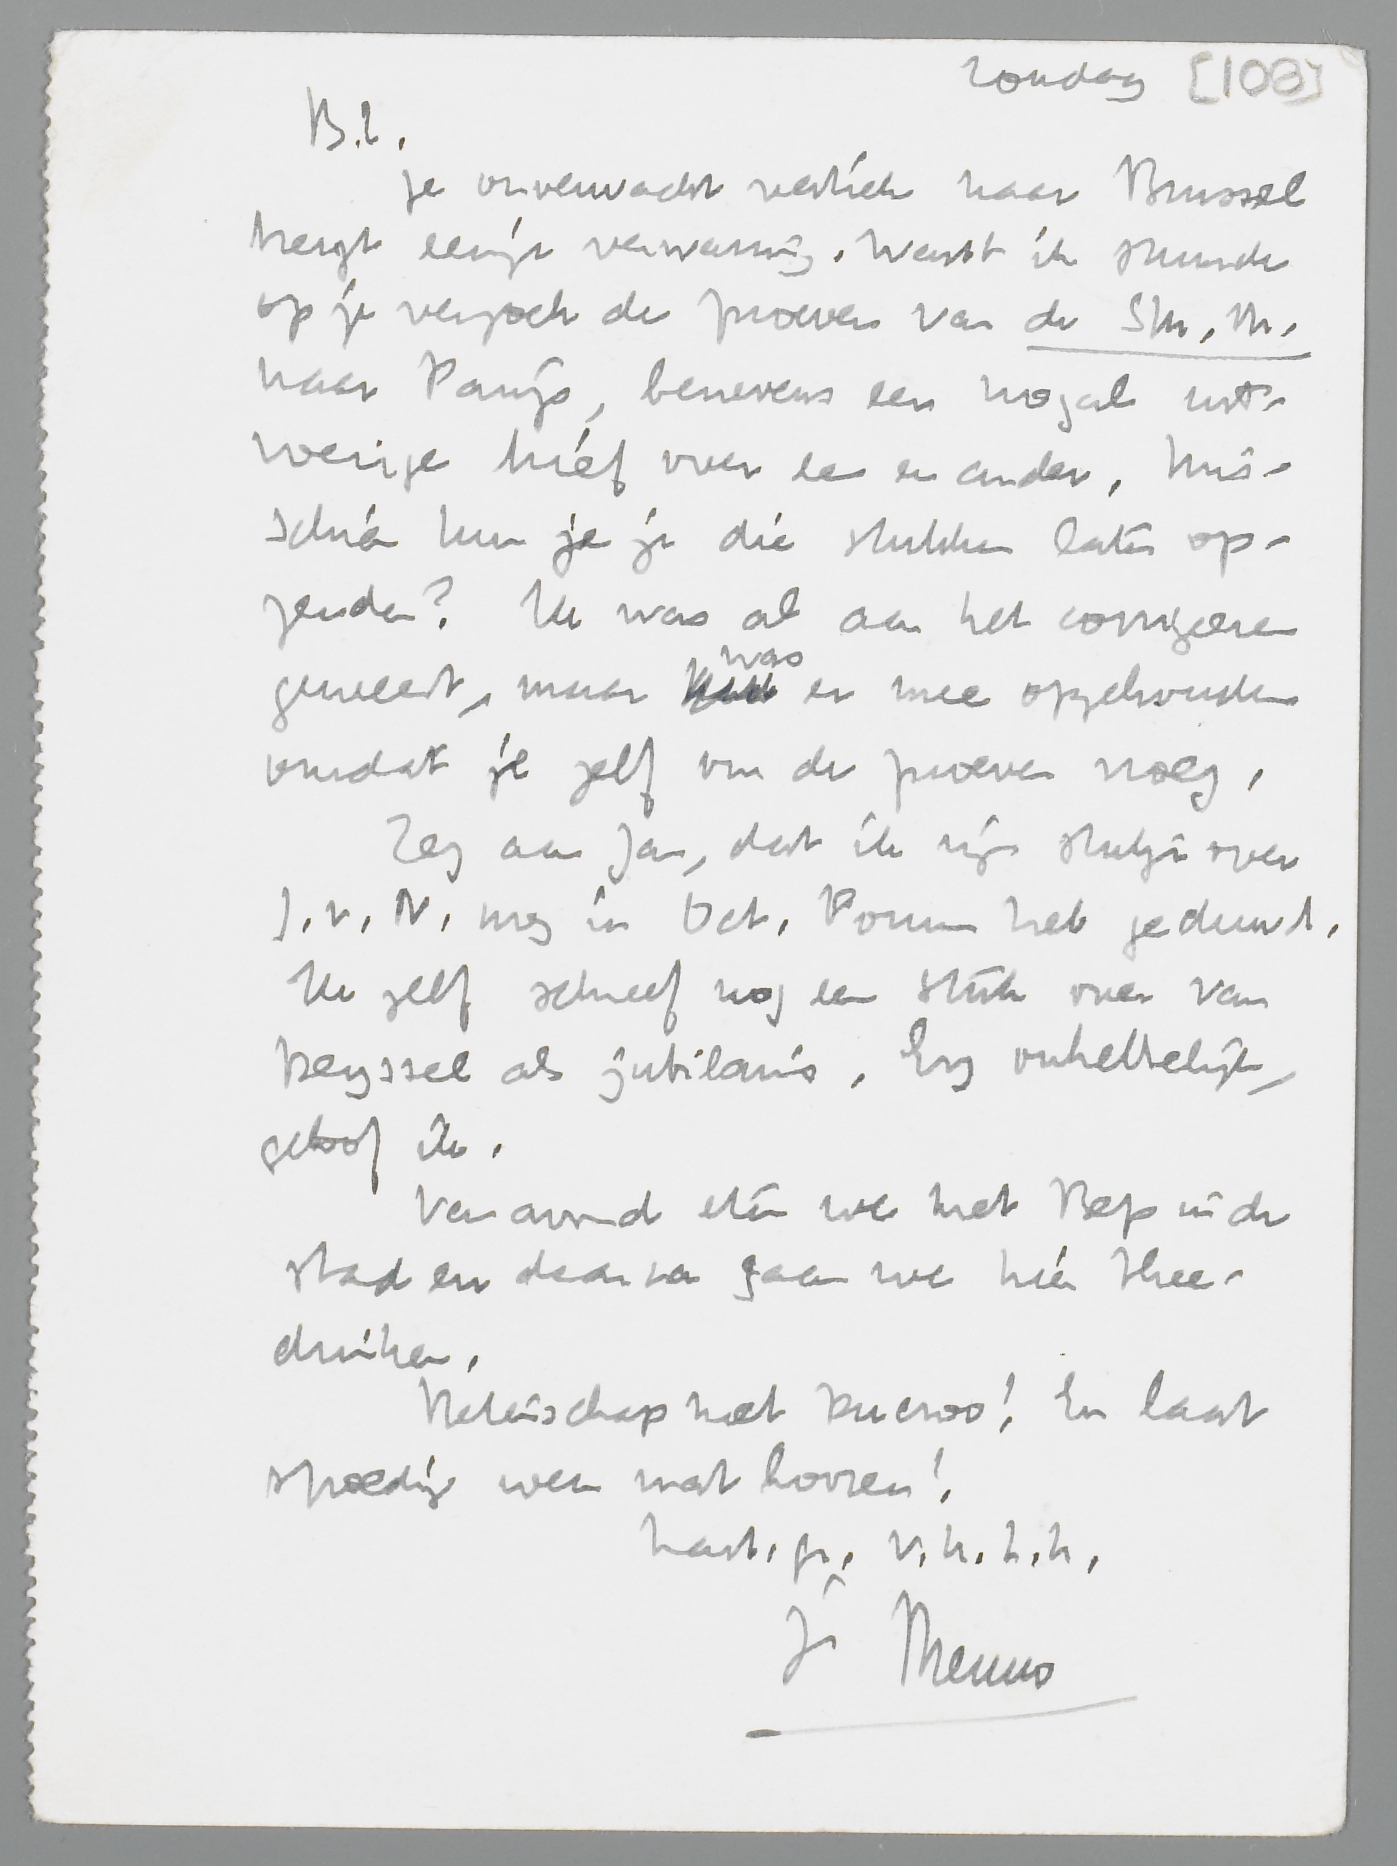 zondag [108]
B.E.
Je onverwacht vertrek naar Brussel
brengt eenige verwarring. Want ik stuurde
op je verzoek de proeven van de Sm. M.
naar Parijs, benevens een nogal uit-
voerige brief over een en ander. Mis-
schien kun je je die stukken laten op-
zenden? Ik was al aan het corrigeeren
geweest, maar was er mee opgehouden
omdat je zelf om de proeven vroeg.
Zeg aan Jan, dat ik zijn stukje over
J.v.N. nog in Oct. Forum heb geduwd.
Ik zelf schreef nog een stuk over Van
Deyssel als jubilaris. Erg onhebbelijk,
geloof ik.
Vanavond eten we met Bep in de
stad en daarna gaan we hier thee-
drinken.
Beterschap met Ducroo! En laat
spoedig weer wat hooren!
hart. gr. v.h.t.h.
je Menno